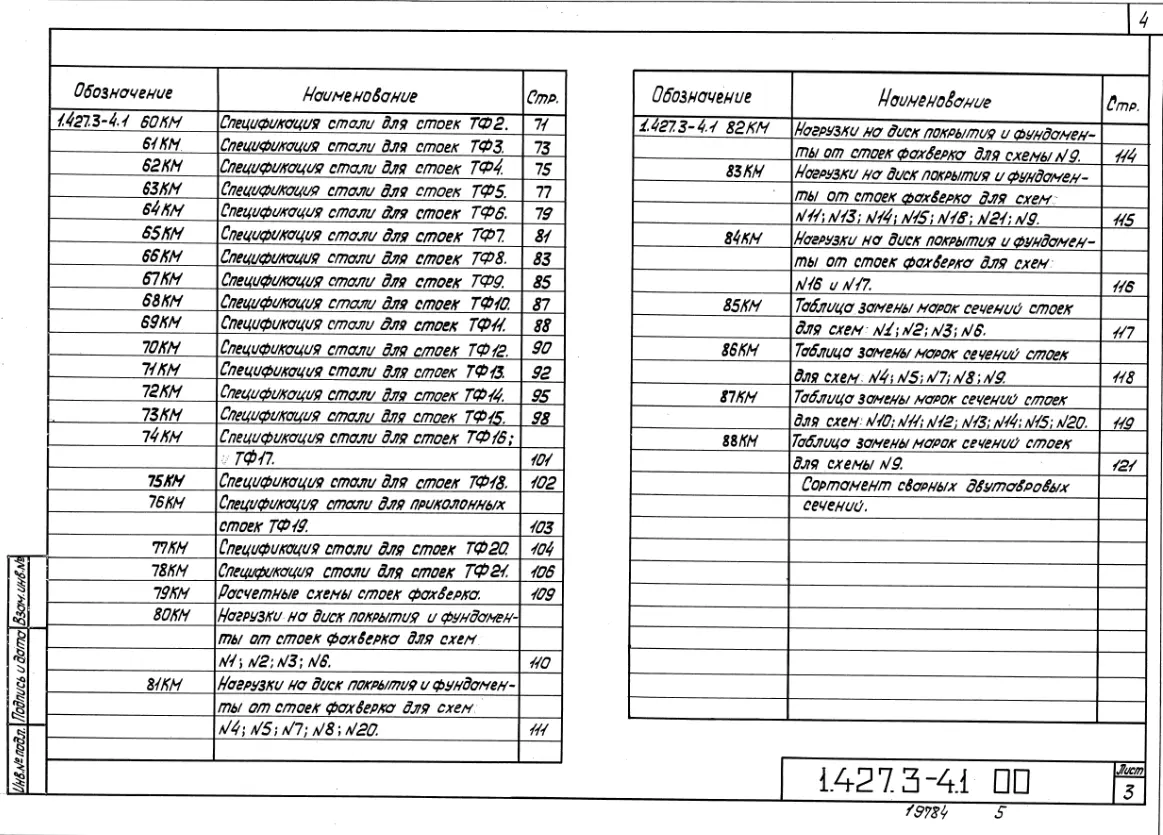 4
Обозначение Наименование Стр.
1.427.3-4.1 60КМ Спецификация стали для стоек ТФ2. 71
61КМ Спецификация стали для стоек ТФ3. 73
62КМ Спецификация стали для стоек ТФ4. 75
63КМ Спецификация стали для стоек ТФ5. 77
64КМ Спецификация стали для стоек ТФ6. 79
65КМ Спецификация стали для стоек ТФ7. 81
66КМ Спецификация стали для стоек ТФ8. 83
67КМ Спецификация стали для стоек ТФ9. 85
68КМ Спецификация стали для стоек ТФ10. 87
69КМ Спецификация стали для стоек ТФ11. 88
70КМ Спецификация стали для стоек ТФ12. 90
71КМ Спецификация стали для стоек ТФ13. 92
72КМ Спецификация стали для стоек ТФ14. 95
73КМ Спецификация стали для стоек ТФ15. 98
74КМ Спецификация стали для стоек ТФ16;
ТФ17. 101
75КМ Спецификация стали для стоек ТФ18. 102
76КМ Спецификация стали для приколонных
стоек ТФ19. 103
77КМ Спецификация стали для стоек ТФ20. 104
78КМ Спецификация стали для стоек ТФ21. 106
79КМ Расчетные схемы стоек фахверка. 109
80КМ Нагрузки на диск покрытия и фундамен-
ты от стоек фахверка для схем
N1; N2; N3; N6. 110
81КМ Нагрузки на диск покрытия и фундамен-
ты от стоек фахверка для схем
N4; N5; N7; N8; N20. 111
Обозначение Наименование Стр.
1.427.3-4.1 82КМ Нагрузки на диск покрытия и фундамен-
ты от стоек фахверка для схемы N9. 114
83КМ Нагрузки на диск покрытия и фундамен-
ты от стоек фахверка для схем
N11; N13; N14; N15; N18; N21; N9. 115
84КМ Нагрузки на диск покрытия и фундамен-
ты от стоек фахверка для схем
N16 и N17. 116
85КМ Таблица замены марок сечений стоек
для схем N1; N2; N3; N6. 117
86КМ Таблица замены марок сечений стоек
для схем N4; N5; N7; N8; N9. 118
87КМ Таблица замены марок сечений стоек
для схем: N10; N11; N12; N13; N14; N15; N20. 119
88КМ Таблица замены марок сечений стоек
для схемы N9. 121
Сортамент сварных двутавровых
сечений.
Инв.№ подл. Подпись и дата Взам.инв.№
1.427.3-4.1 00
Лист
3
19784 5